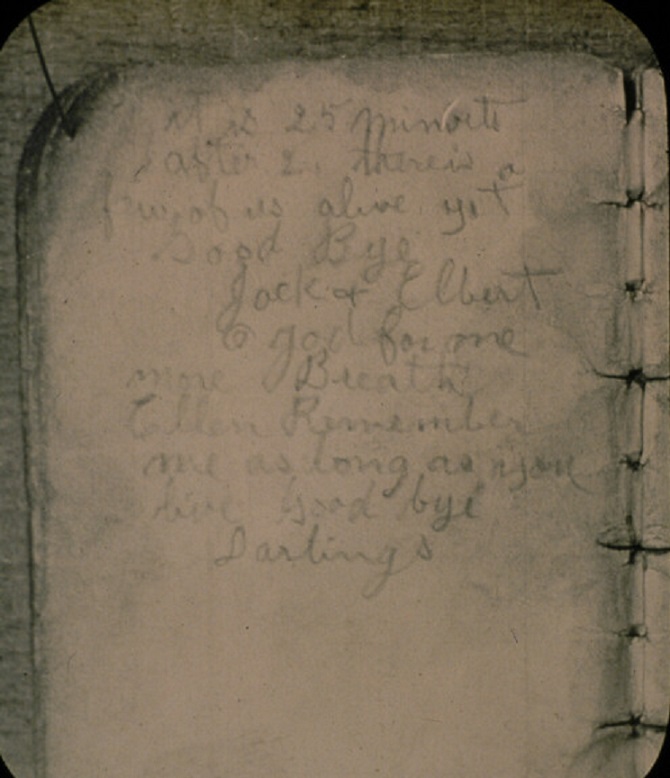 it is 25 minuets
after 2. there is a
few of us alive yet
Good Bye
Jack & Elbert
O god for one
more Breath
Ellen Remember
me as long as you
live Good bye
Darlings